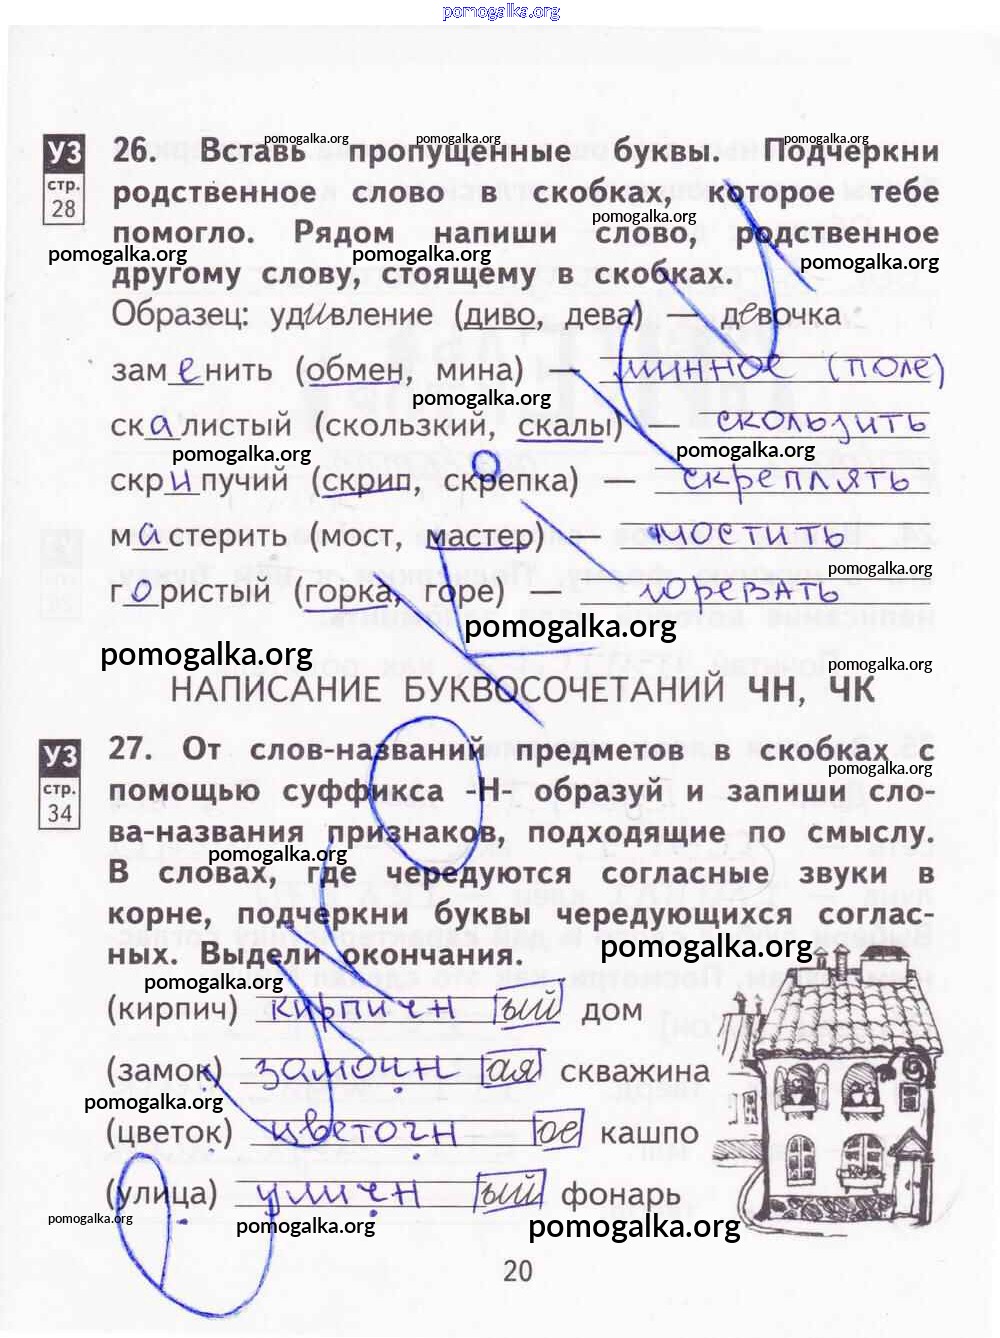 pomogalka.org
УЗ
стр.
28
pomogalka.org pomogalka.org pomogalka.org
26. Вставь пропущенные буквы. Подчеркни
родственное слово в скобках, которое тебе
pomogalka.org
помогло. Рядом напиши слово, родственное
pomogalka.org pomogalka.org pomogalka.org
другому слову, стоящему в скобках.
Образец: удивление (диво, дева) — девочка
заменить (обмен, мина) — минное (поле)
pomogalka.org
скалистый (скользкий, скалы) — скользить
pomogalka.org pomogalka.org
скрипучий (скрип, скрепка) — скреплять
мастерить (мост, мастер) — мостить
pomogalka.org
гористый (горка, горе) — горевать
pomogalka.org
pomogalka.org pomogalka.org
НАПИСАНИЕ БУКВОСОЧЕТАНИЙ ЧН, ЧК
УЗ
стр.
34
27. От слов-названий предметов в скобках с
pomogalka.org
помощью суффикса -Н- образуй и запиши сло-
ва-названия признаков, подходящие по смыслу.
pomogalka.org
В словах, где чередуются согласные звуки в
корне, подчеркни буквы чередующихся соглас-
ных. Выдели окончания.
pomogalka.org
pomogalka.org
(кирпич) кирпичный дом
(замок) замочная скважина
pomogalka.org
(цветок) цветочное кашпо
(улица) уличный фонарь
pomogalka.org pomogalka.org pomogalka.org
20